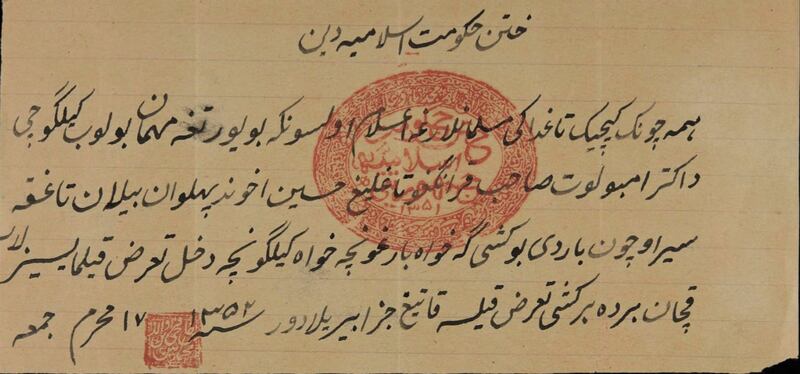 ختن حکومت اسلامیه دین
همه چونک کیچیک تاغداکی مسلمانلارغه اعلام اولسونکه بو یورتغه مهمان بولوب کیلگوچی
داکتر امبولوت صاحب قرانگغو تاغلیغ حسین اخوند پهلوان بیلان تاغقه
سیر اوچون باردی بو کشی گه خواه بارغونچه خواه کیلگونچه دخل تعرض قیلمایسیزلار
قچان برده بر کشی تعرض قیلسه قاتیغ جزا بیریلادور سنه ۱۳۵۲ ۱۷ محرم جمعه
۱۳۵۱